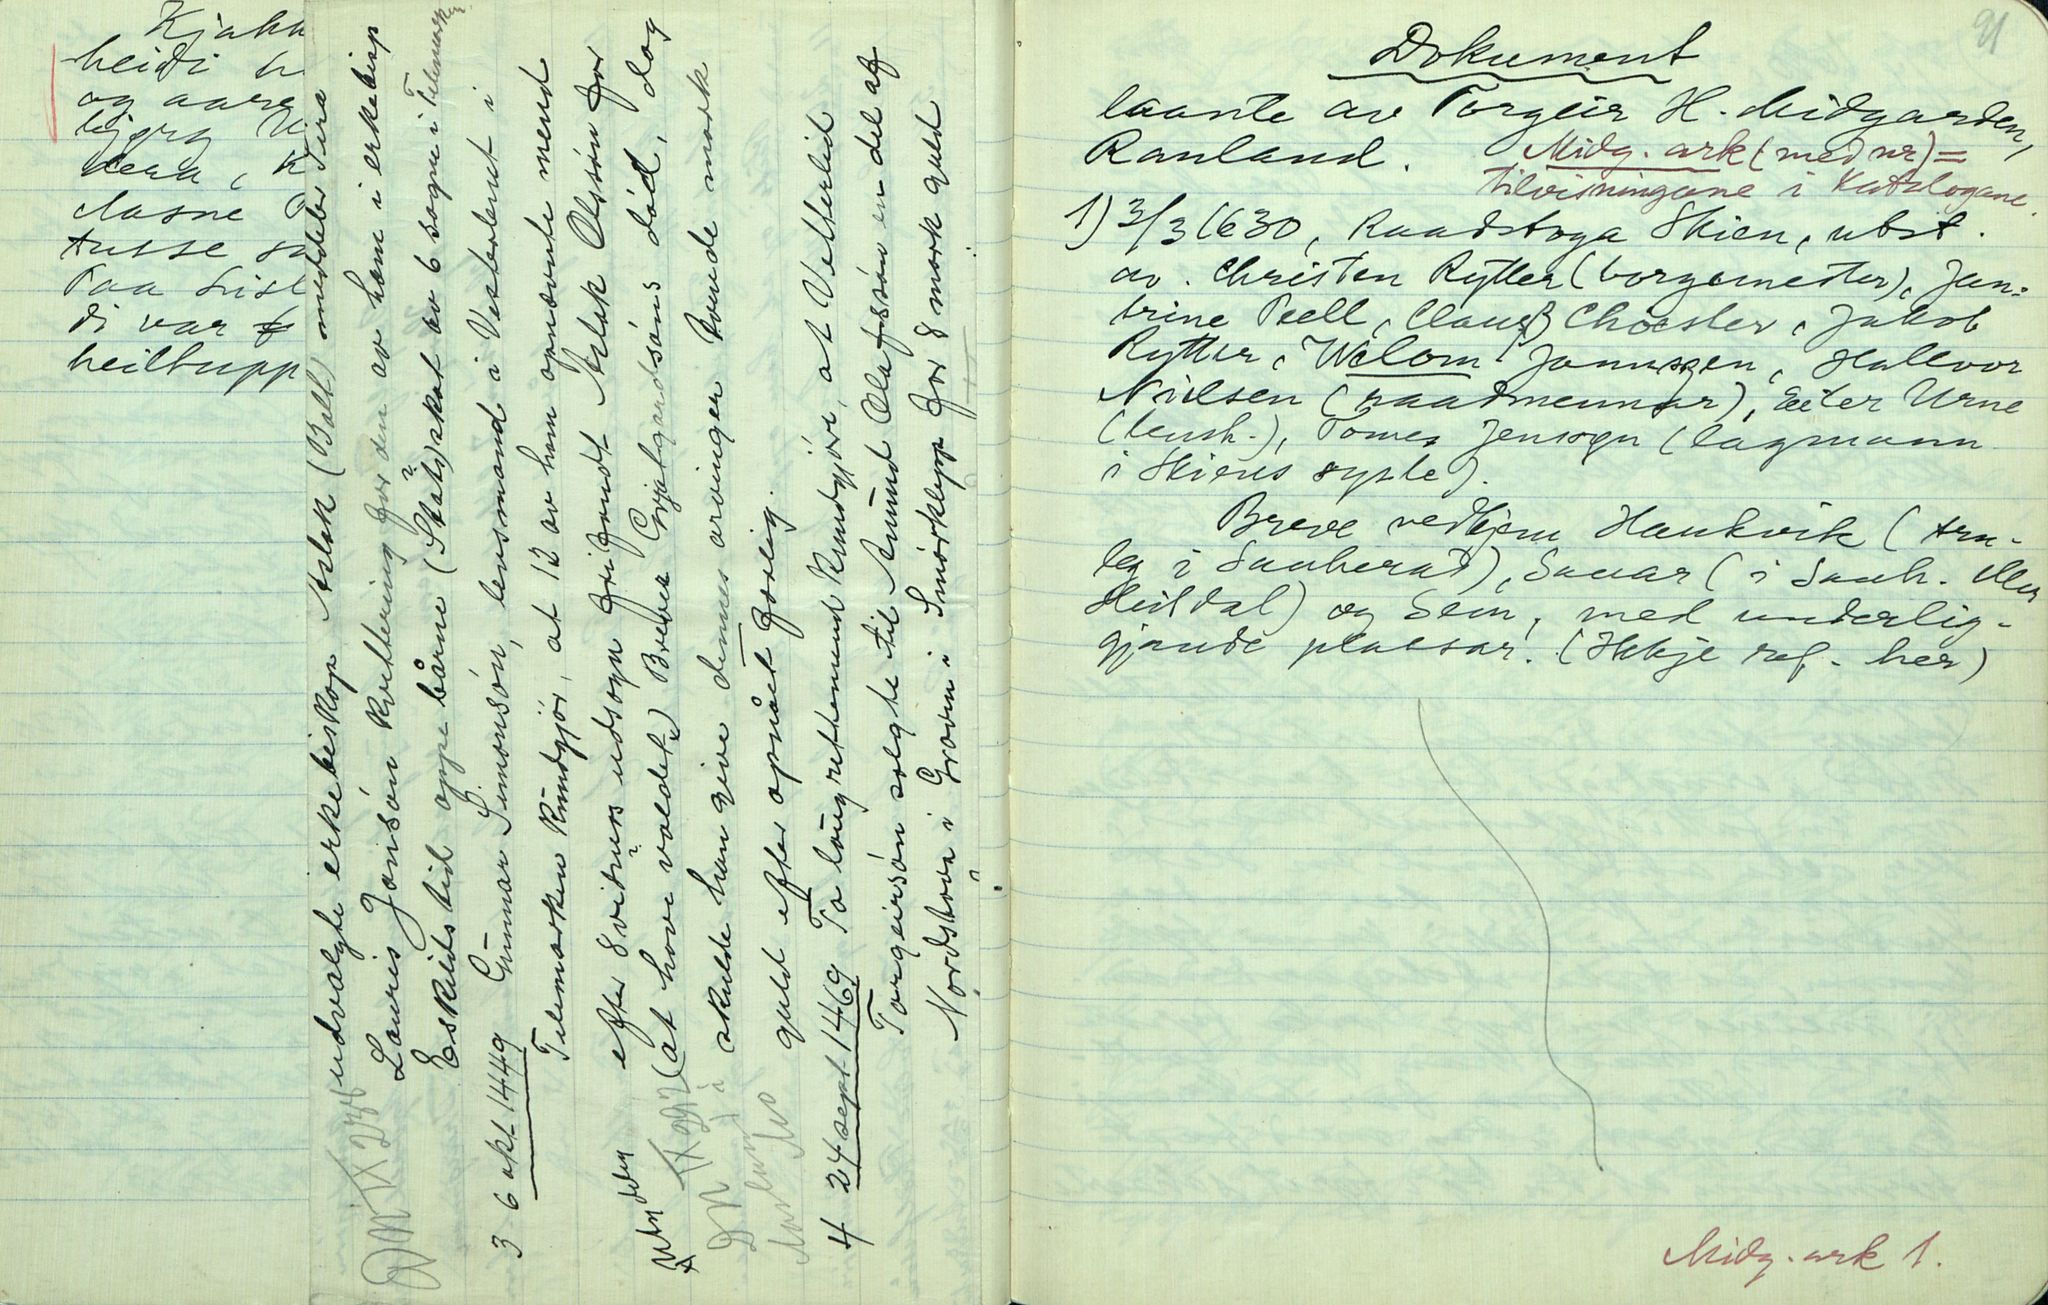 Kjakk
heidi h
og aare
bjørg H
dera, K
Aasne T
tusse sa
Paa Sist
di var
heiltupp
udvalgte erkebiskop Aslak (Bolt) meddeler Sira
Lauris Jonisón kvittering for den av ham i erkebisp
Eskilds tid oppebårne (Stats?) skat av 6 sogne i Telemarken
DN IX 278
3 6 okt. 1449 Gunnar Simonsón, lensmand i Vesterleut i
Telemarken kundgjör, at 12 av ham opnævnte mend
efter 8 vidners udsogn frifandt Aslak Olssön for
(at have voldet) Brevea Grjotgardsöns död, dog
skulde han give dennes arvinger Bonde mark
guld efter opnået forlig.
DN IX 297
4 24 sept 1469 To lougrettemend kundgjöre, at Vetterlid
Torgeirsón solgte til Aamund Olafssón en del af
Nordstove i Groven i Smörklepp for 8 mark guld
91
Dokument
laante av Torgeir H. Midgarden,
Rauland.
Midg. ark (med nr) =
tilvisningane i Katalogane.
1) 3/3 1630, Raadstoga Skien, utst.
av. Christen Rytter (borgemester), Jan-
trine Peell, Clauß Choester, Jakob
Rytter, Wilom Jannszen, Hallvor
Nielsen (raadmennar), Eiler Urne
(lensh.), Tomes Jensøgn (lagmann
i Skiens sysle).
Breve vedkjem Haukvik (Arn-
leg i Sauherad), Sauar (i Sauh. eller
Heitdal) og Sem, med underlig-
gjande plassar. (Ikkje ref. her)
Midg. ark 1.